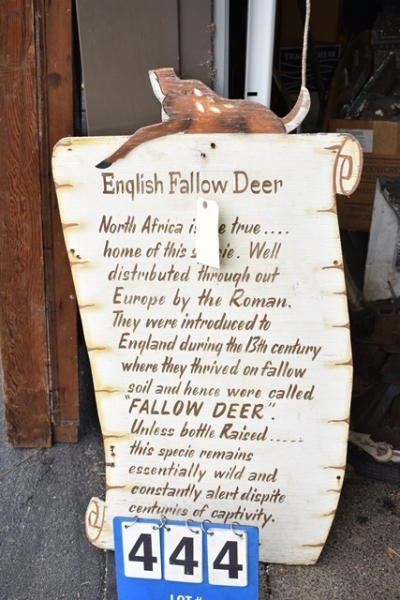 English Fallow Deer
North Africa is e true....
home of this s cie. Well
distributed through out
Europe by the Roman.
They were introduced to
England during the 13th century
where they thrived on fallow
soil and hence were called
"FALLOW DEER".
Unless bottle Raised.....
this specie remains
essentially wild and
constantly alert dispite
centuries of captivity.
444
LOT #